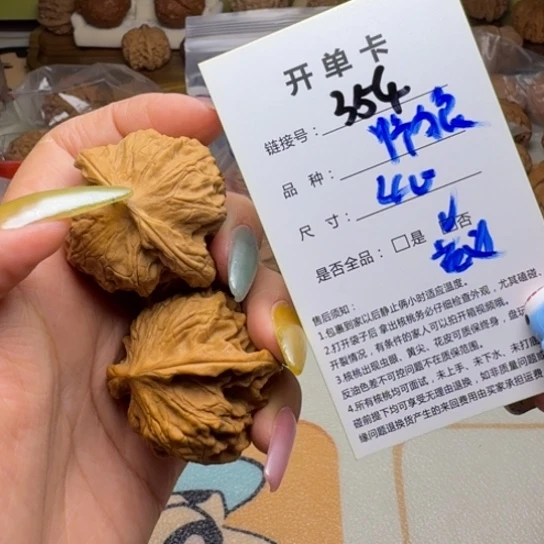 开单卡
链接号：354
品 种：
尺 寸：40
是否全品：□是 □否
售后须知：
1.包裹到家以后静止俩小时适应温度。
2.打开袋子后 拿出核桃务必仔细检查外观，尤其磕碰、
开裂情况，有条件的家人可以拍开箱视频哦。
3.核桃出现虫眼、黄尖、花皮可质保终身，盘玩
反油色差不可控问题不在质保范围。
4.所有核桃均可面试，未上手、未下水、未打底
碰前提下均可享受无理由退换，如非质量问题或
缘问题退换货产生的来回费用由买家承担运费